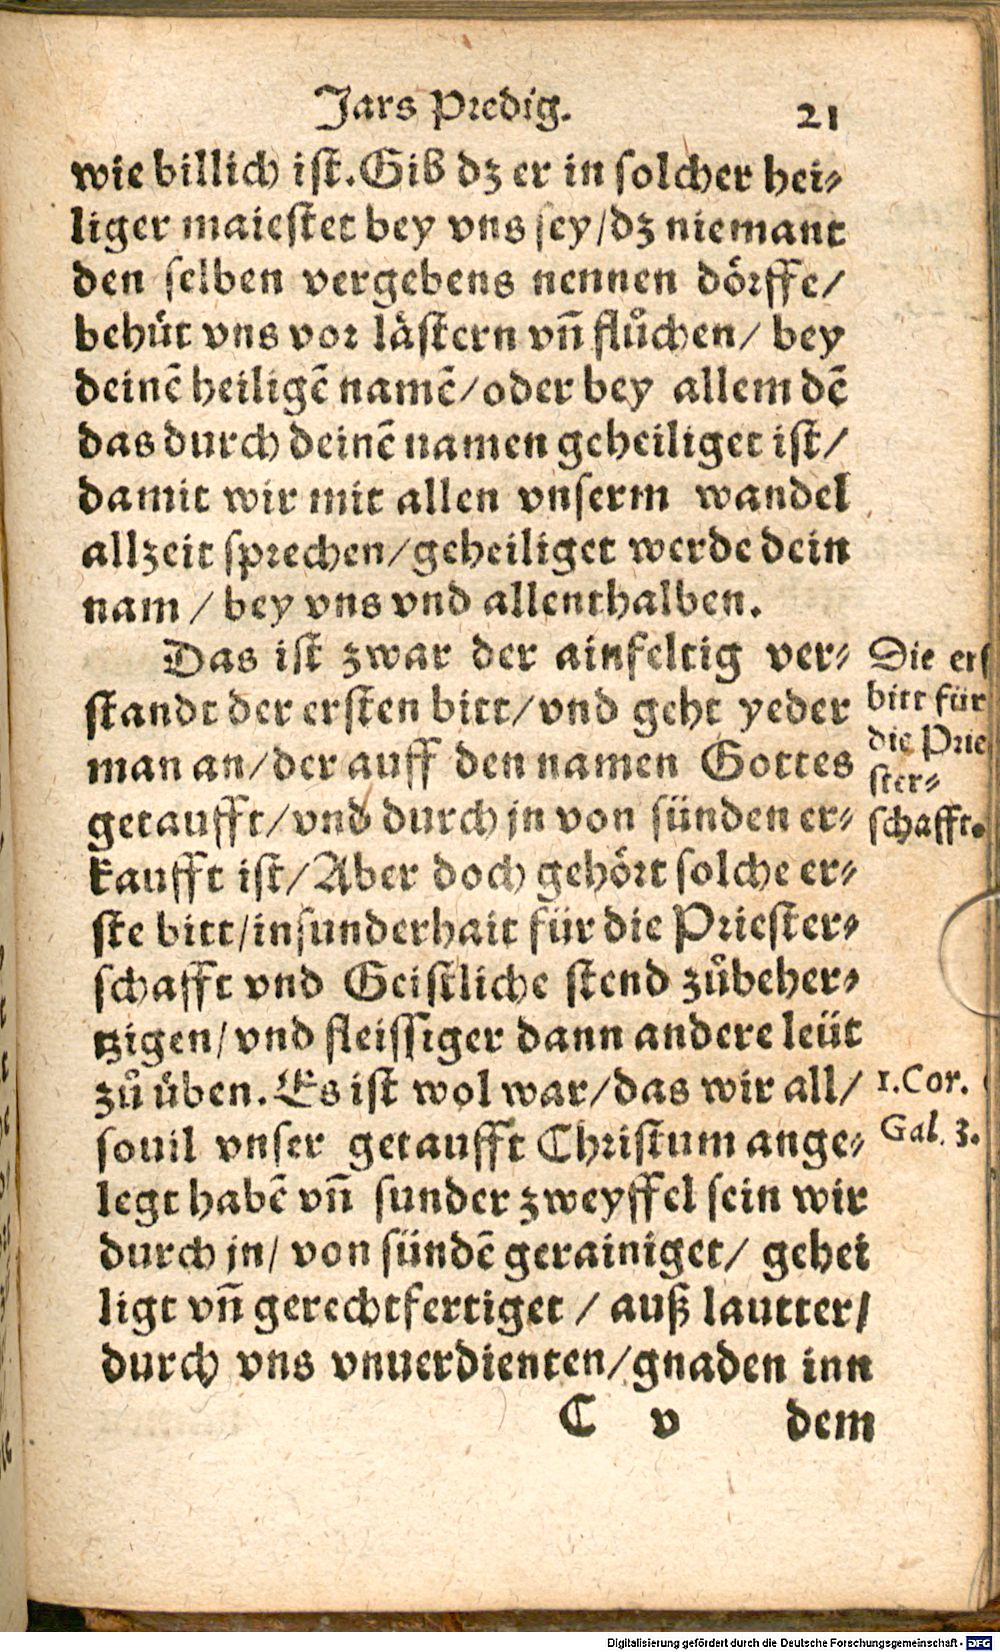 Jars Predig. 21
wie billich ist. Gib dz er in solcher hei-
liger maiestet bey vns sey/dz niemant
den selben vergebens nennen dörffe/
behüt vns vor lästern vñ flůchen/ bey
deinẽ heiligẽ namẽ/oder bey allem dẽ
das durch deinẽ namen geheiliget ist/
damit wir mit allen vnserm wandel
allzeit sprechen/geheiliget werde dein
nam / bey vns vnd allenthalben.
Das ist zwar der ainfeltig ver-
standt der ersten bitt/vnd geht yeder
man an/der auff den namen Gottes
getaufft/vnd durch jn von sünden er-
kaufft ist/Aber doch gehört solche er-
ste bitt/insunderhait für die Priester-
schafft vnd Geistliche stend zůbeher-
tzigen/vnd fleissiger dann andere leüt
zů üben. Es ist wol war/das wir all/
souil vnser getaufft Christum ange-
legt habẽ vñ sunder zweyffel sein wir
durch jn/ von sündẽ gerainiget/ gehei
ligt vñ gerechtfertiget / auß lautter/
durch vns vnuerdienten/gnaden inn
C v dem
Die ers
bitt für
die Prie
ster-
schafft.
1. Cor.
Gal. 3.
Digitalisierung gefördert durch die Deutsche Forschungsgemeinschaft - DFG